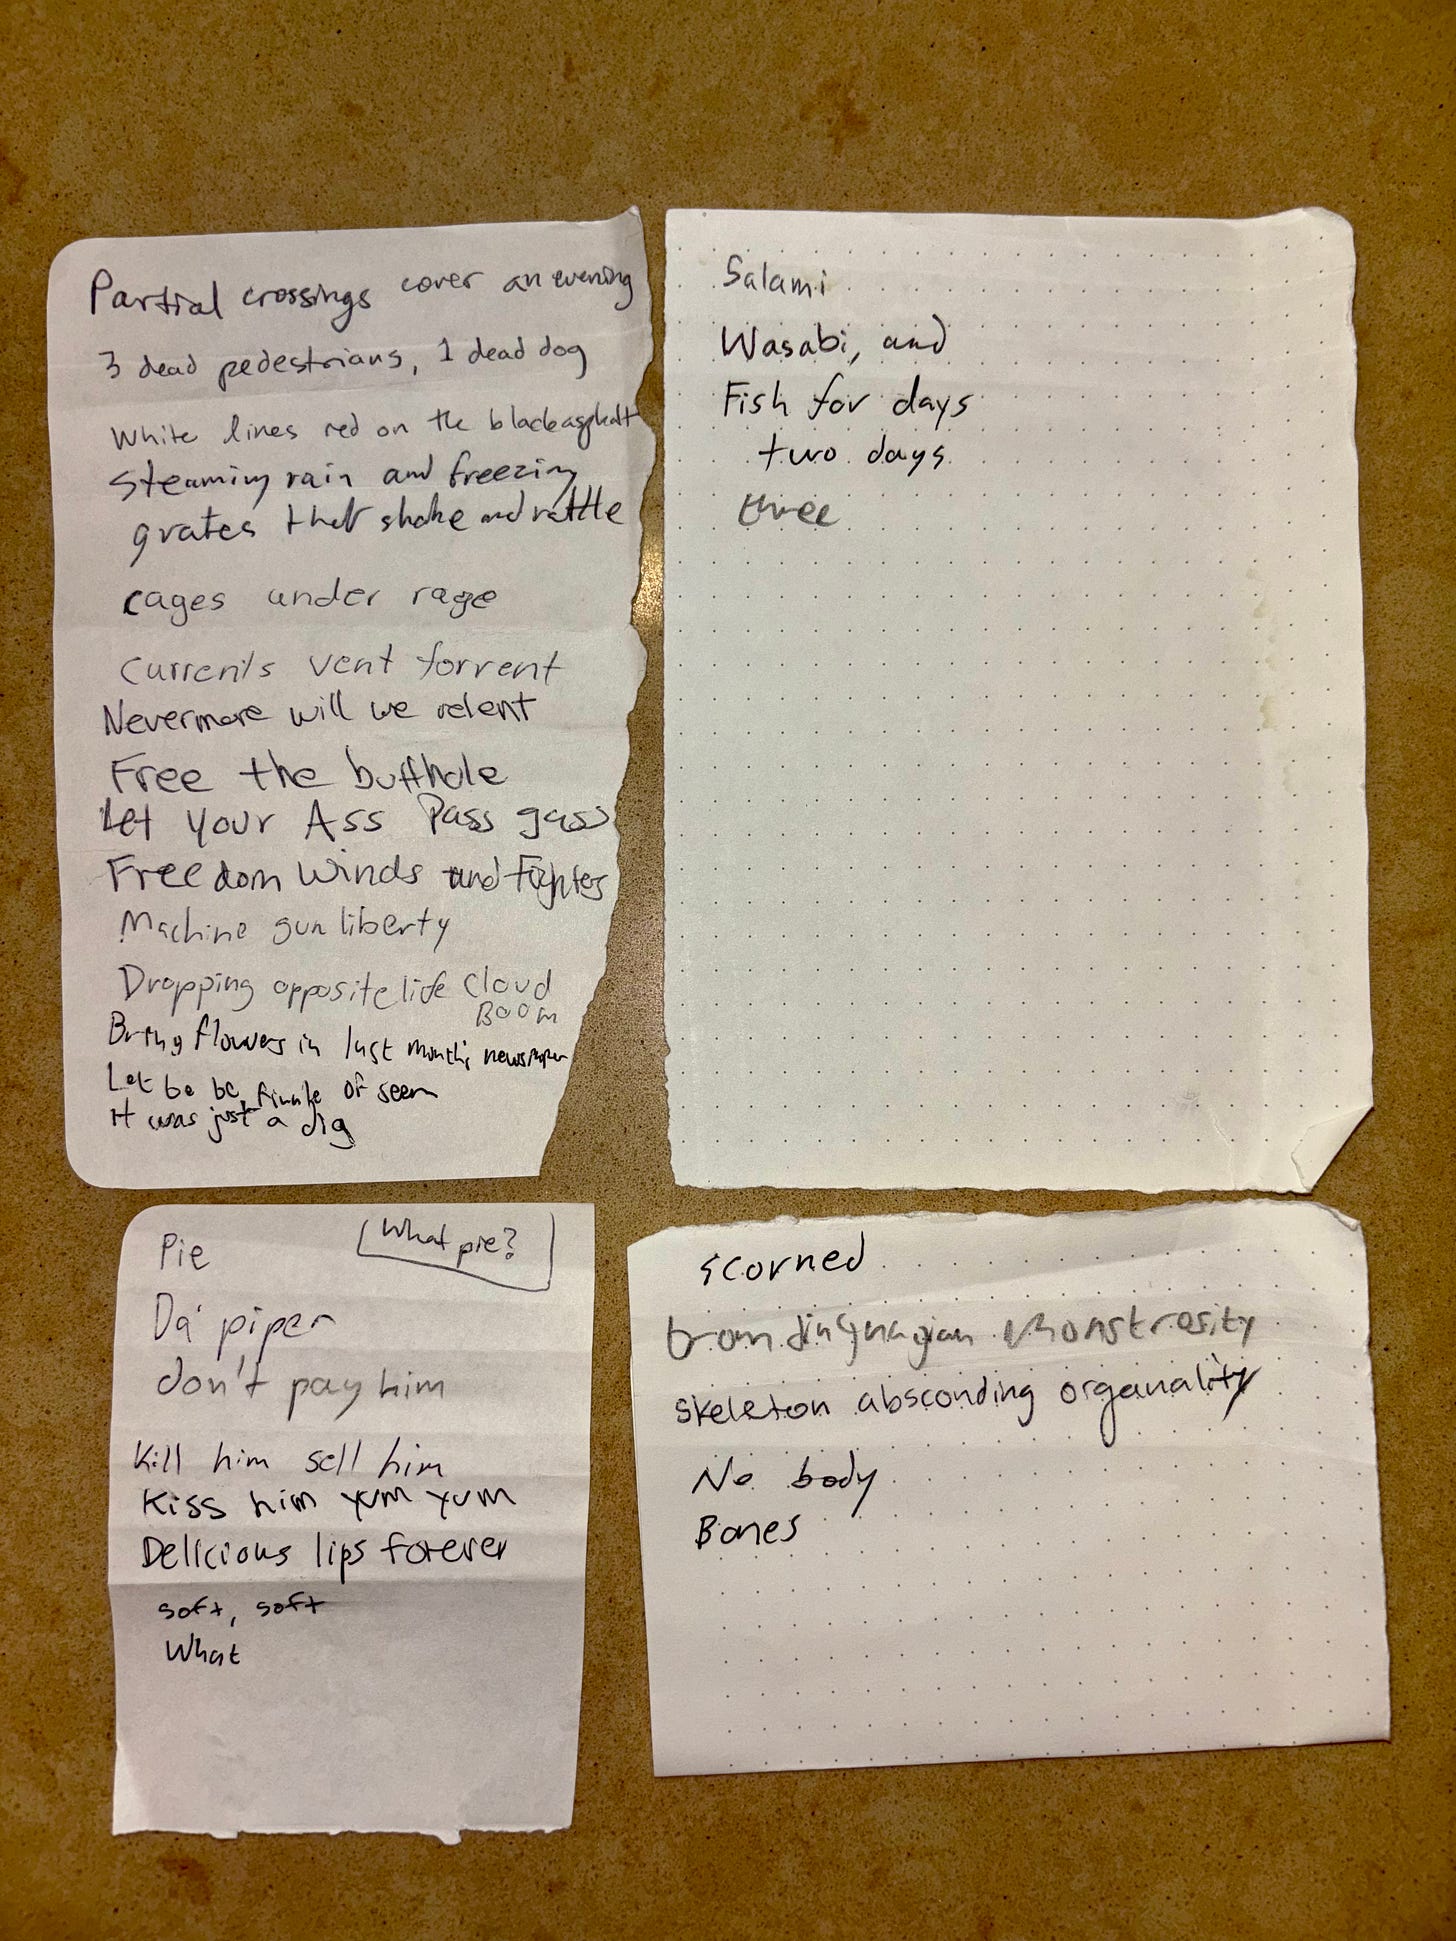 Partial crossings cover an evening
3 dead pedestrians, 1 dead dog
White lines red on the black asphalt
steaming rain and freezing
grates that shake and rattle
cages under rage
Currents vent torrent
Nevermore will we relent
Free the butthole
Let your Ass Pass gass
Freedom Winds and Fighter
Machine gun liberty
Dropping opposite life cloud
Boom
Bring flowers in last month's newspaper
Let be be finale of seem
It was just a dig
Salami
Wasabi, and
Fish for days
two days
three
Pie
What pie?
Da' piper
don't pay him
Kill him sell him
Kiss him yum yum
Delicious lips forever
soft, soft
What
scorned
monstrosity
skeleton absconding organality
No body
Bones